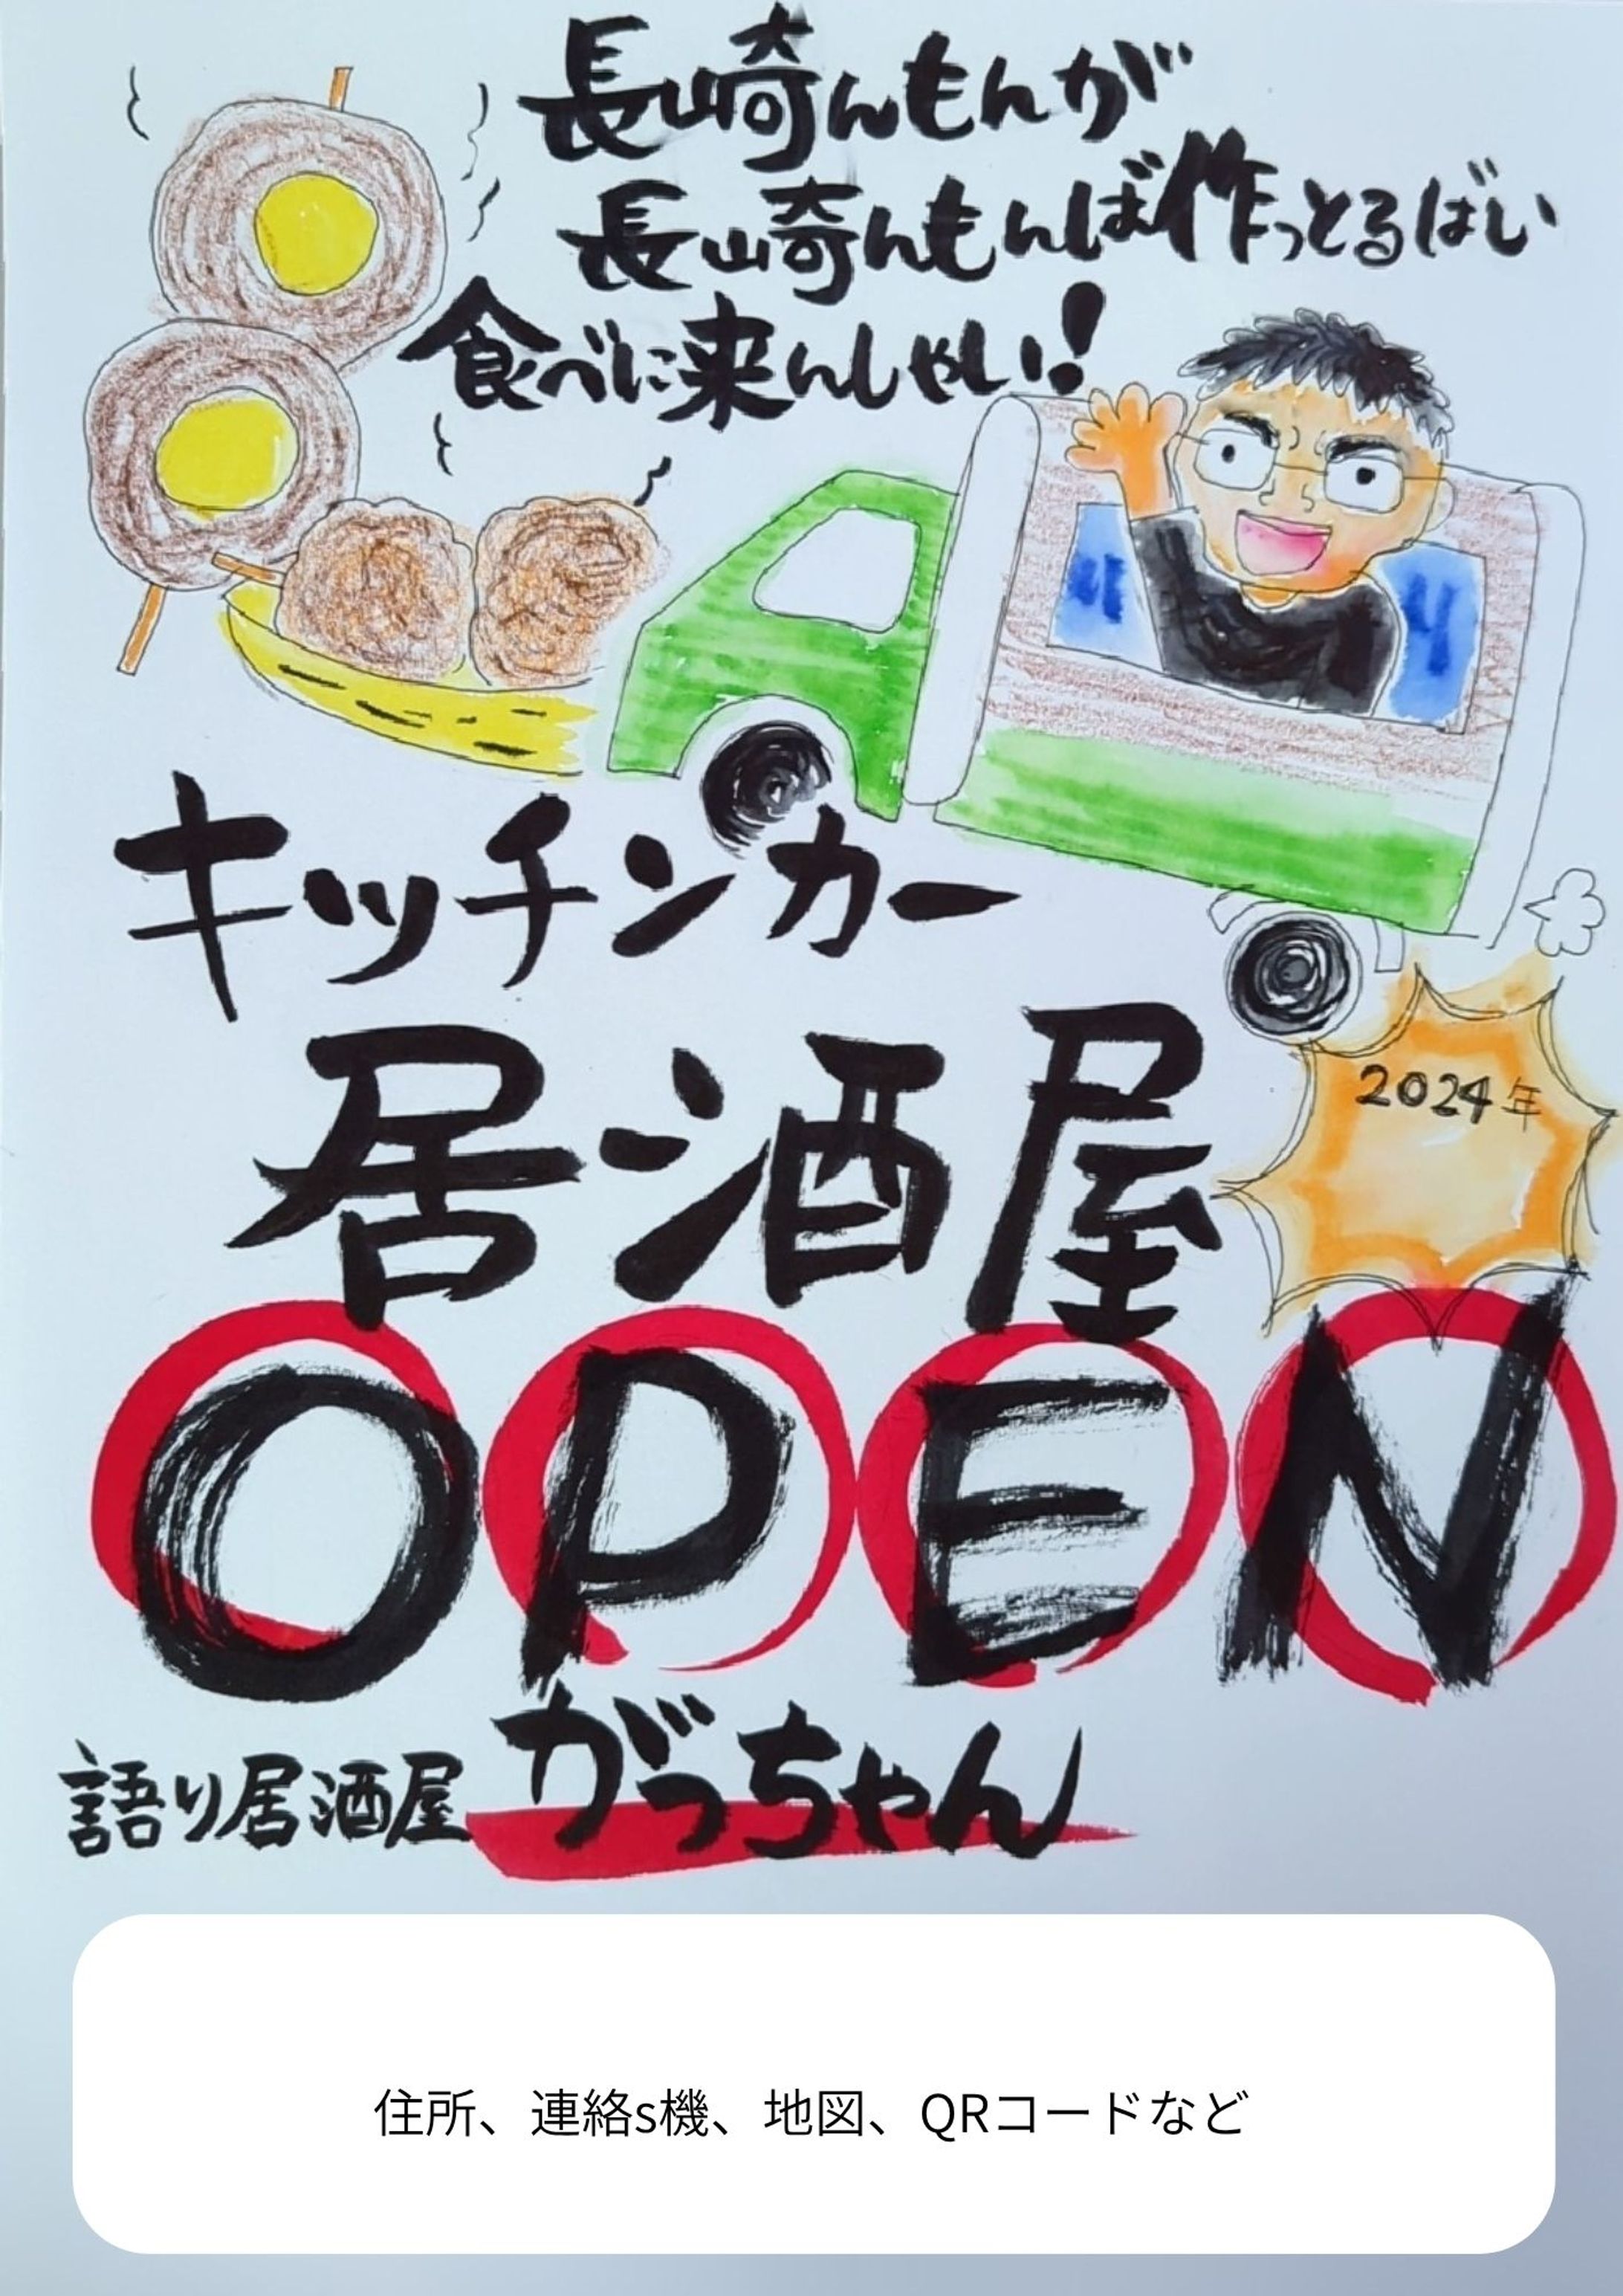 長崎んもんが
長崎んもんば作っとるばい
食べに来んしゃい!
キッチンカー
居酒屋
2024年
OPEN
語り居酒屋 がっちゃん
住所、連絡s機、地図、QRコードなど